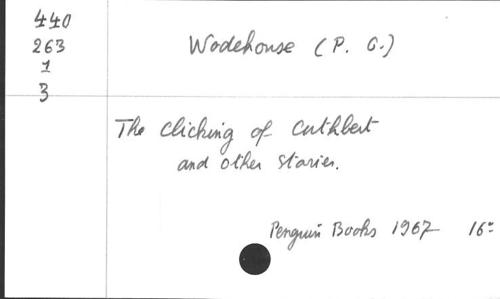 440
263
1
3
Wodehouse (P. G.)
The Clicking of Cuthbert
and other Stories.
Penguin Books 1967 16°